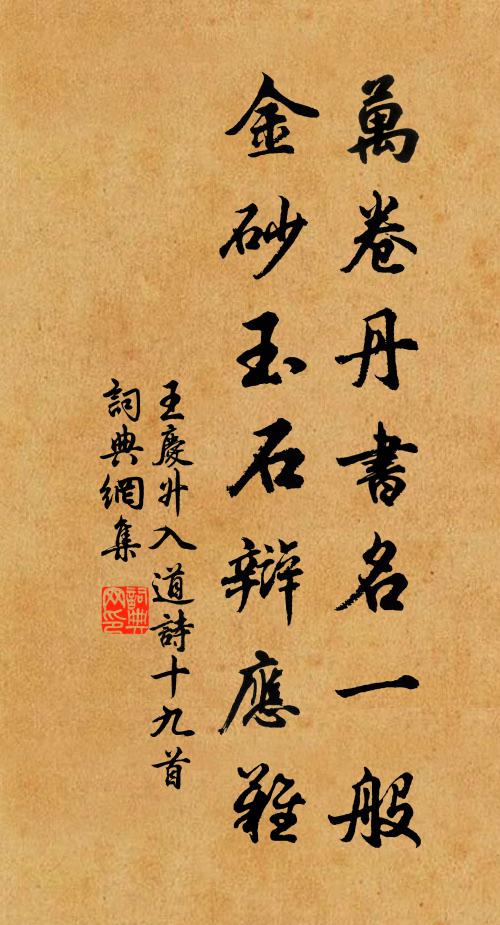 萬卷丹書名一般
金砂玉石辯應難
王慶升入道詩十九首
詞典網集
詞典网印